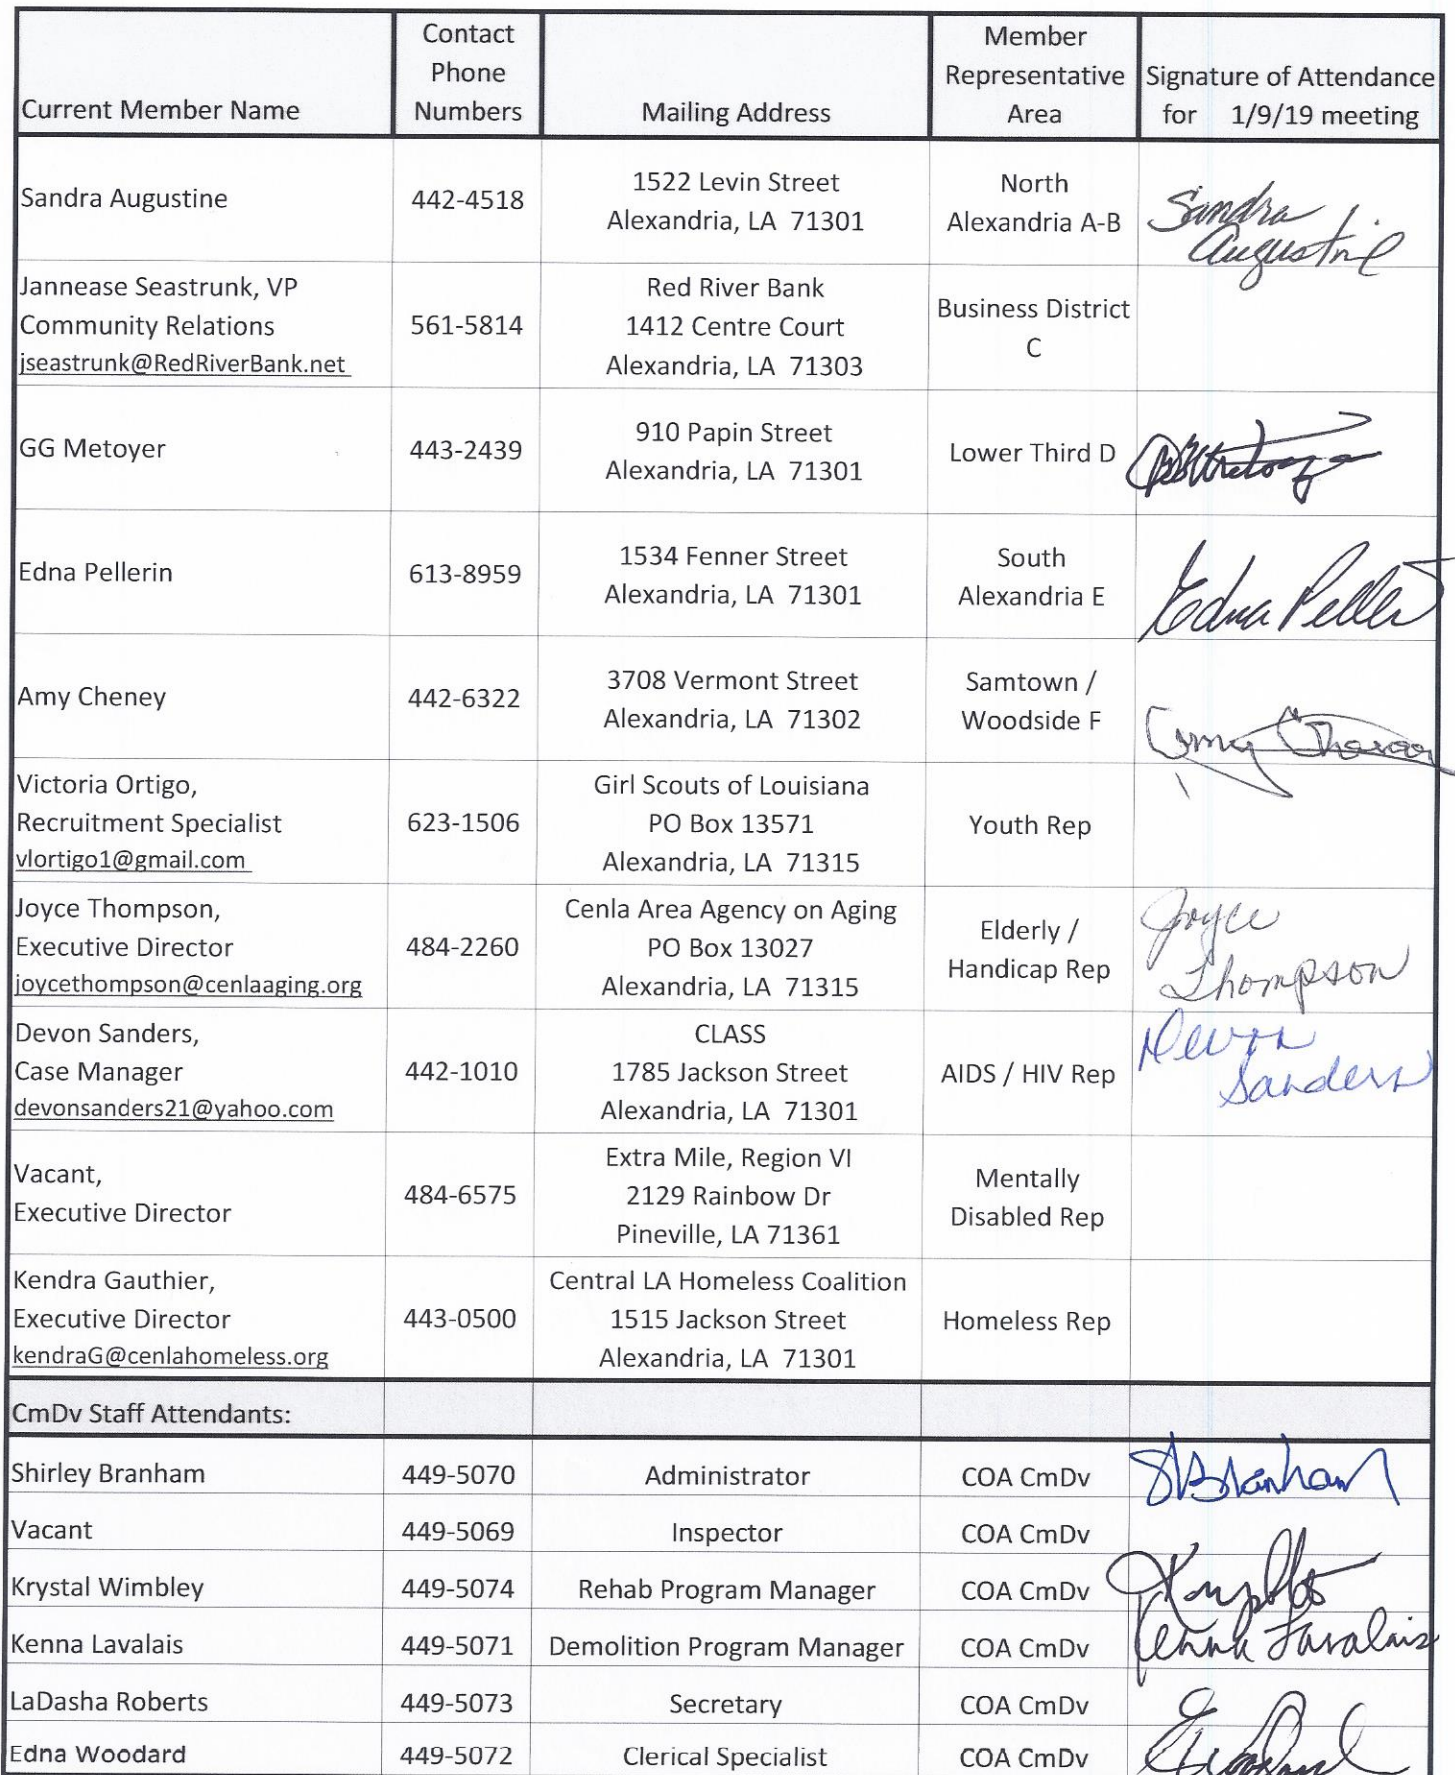 Current Member Name
Contact Phone Numbers
Mailing Address
Member Representative Area
Signature of Attendance for 1/9/19 meeting
Sandra Augustine
442-4518
1522 Levin Street
Alexandria, LA 71301
North
Alexandria A-B
Sandra
Augustine
Jannease Seastrunk, VP
Community Relations
jseastrunk@RedRiverBank.net
561-5814
Red River Bank
1412 Centre Court
Alexandria, LA 71303
Business District
C
GG Metoyer
443-2439
910 Papin Street
Alexandria, LA 71301
Lower Third D
Edna Pellerin
613-8959
1534 Fenner Street
Alexandria, LA 71301
South
Alexandria E
Edna
Amy Cheney
442-6322
3708 Vermont Street
Alexandria, LA 71302
Samtown /
Woodside F
Amy
Victoria Ortigo,
Recruitment Specialist
vlortigo1@gmail.com
623-1506
Girl Scouts of Louisiana
PO Box 13571
Alexandria, LA 71315
Youth Rep
Joyce Thompson,
Executive Director
joycethompson@cenlaaging.org
484-2260
Cenla Area Agency on Aging
PO Box 13027
Alexandria, LA 71315
Elderly /
Handicap Rep
Joyce
Thompson
Devon Sanders,
Case Manager
devonsanders21@yahoo.com
442-1010
CLASS
1785 Jackson Street
Alexandria, LA 71301
AIDS / HIV Rep
Devon
Sanders
Vacant,
Executive Director
484-6575
Extra Mile, Region VI
2129 Rainbow Dr
Pineville, LA 71361
Mentally
Disabled Rep
Kendra Gauthier,
Executive Director
kendraG@cenlahomeless.org
443-0500
Central LA Homeless Coalition
1515 Jackson Street
Alexandria, LA 71301
Homeless Rep
CmDv Staff Attendants:
Shirley Branham
449-5070
Administrator
COA CmDv
SBranham
Vacant
449-5069
Inspector
COA CmDv
Krystal Wimbley
449-5074
Rehab Program Manager
COA CmDv
Kenna Lavalais
449-5071
Demolition Program Manager
COA CmDv
Kenna Lavalais
LaDasha Roberts
449-5073
Secretary
COA CmDv
Edna Woodard
449-5072
Clerical Specialist
COA CmDv